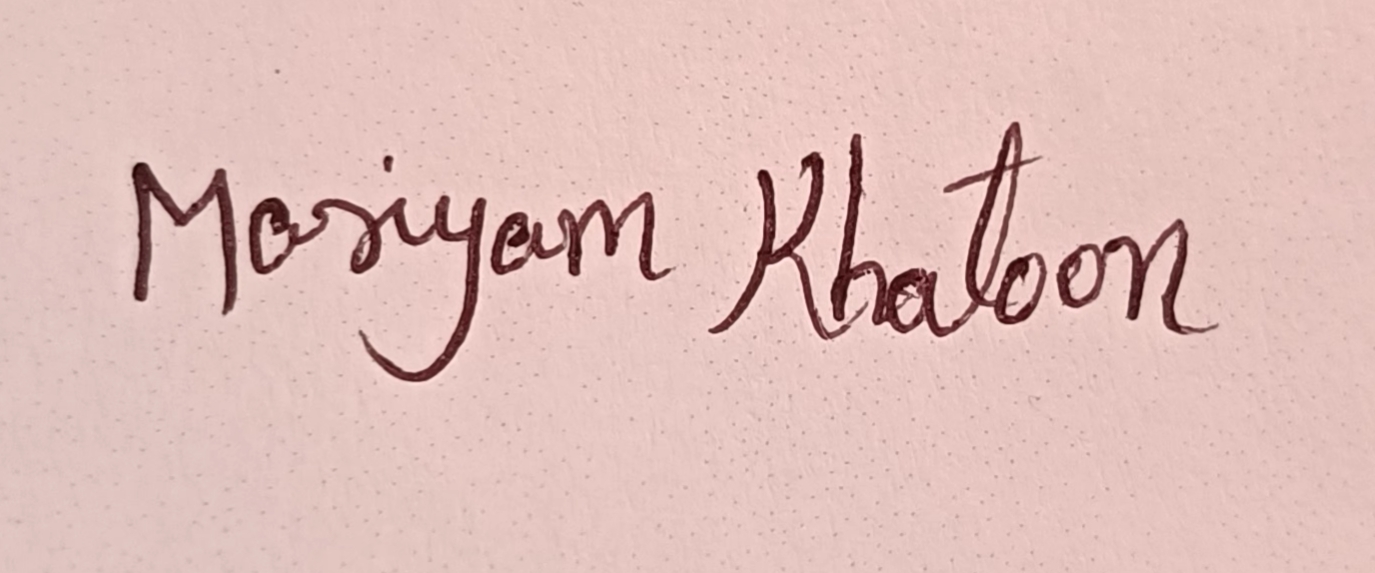 Mariyam Khatoon